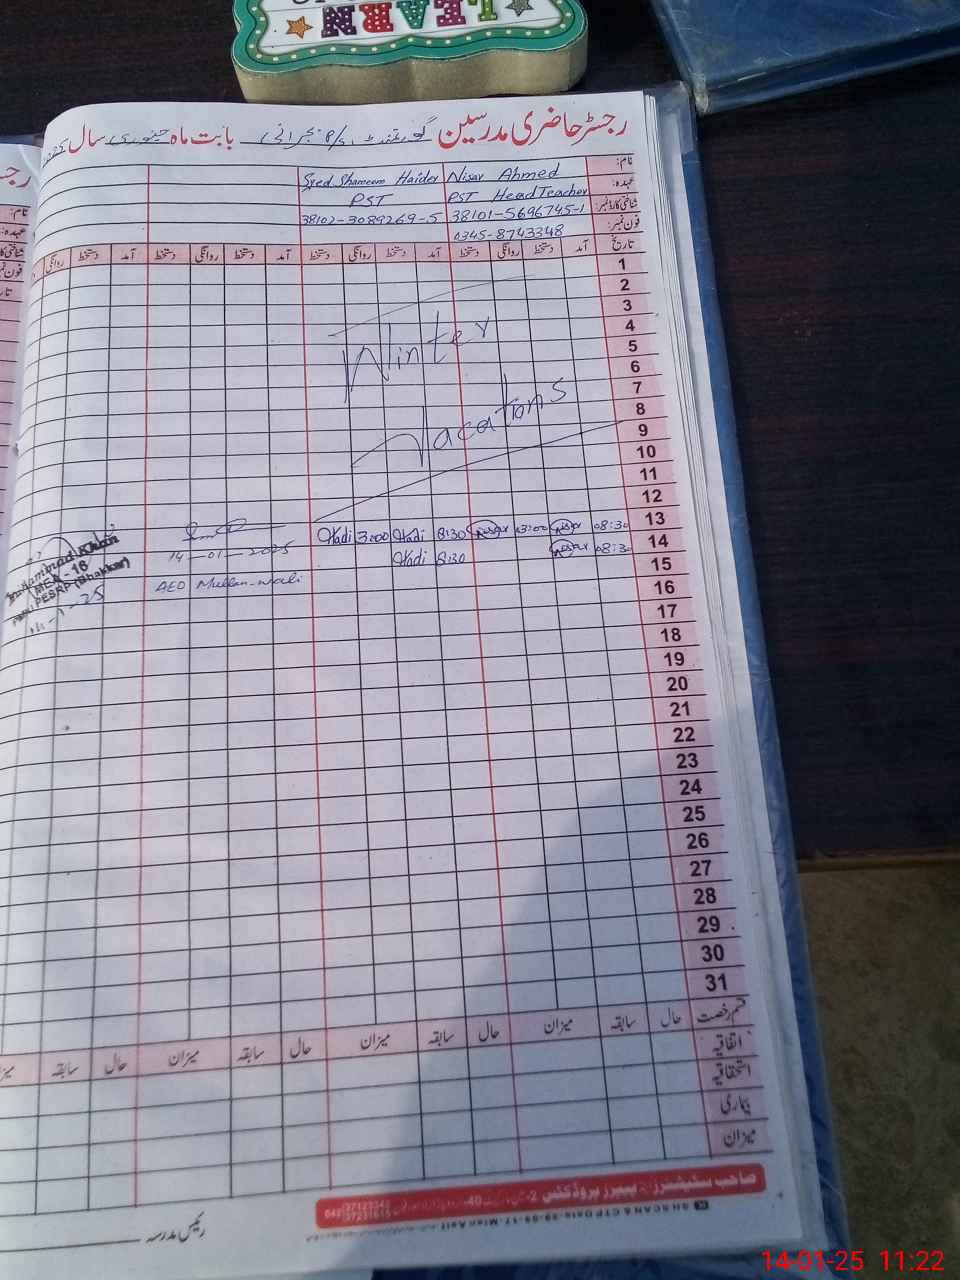 LEARN
رجسٹر حاضری مدرسین گورنمنٹ بابت ماہ جنوری سال 2025
نام: Nisar Ahmed Syed Shameem Haider
عہدہ: PST HeadTeacher PST
شناختی کارڈ نمبر: 38101-5696745-1 38102-3089269-5
فون نمبر: 0345-8743348
تاریخ آمد دستخط روانگی دستخط آمد دستخط روانگی دستخط آمد دستخط روانگی دستخط آمد دستخط روانگی
1
2
3
4
Winter
5
6
7
8
Vacations
9
10
11
12
13 08:30 Nisar 03:00 Nisar 8:30 Hadi 3:00 Hadi
14 08:30 Nisar 8:30 Hadi
14-01-2025
15
AEO Mullan-wali
Muhammad Khan
MEA - 16
PESRP (Bhakkar)
16
17
18
19
20
21
22
23
24
25
26
27
28
29
30
31
قسم رخصت حال سابقہ میزان حال سابقہ میزان حال سابقہ میزان حال سابقہ
اتفاقیہ
استحقاقیہ
بیماری
میزان
صاحب سٹیشنرز اینڈ پیپرز پروڈکٹس
رئیس مدرسہ
14-01-25 11:22